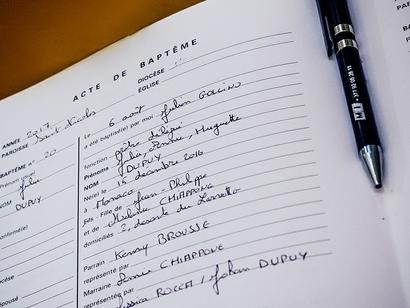 ACTE DE BAPTÊME
ANNÉE 2017
DIOCÈSE
PAROISSE Saint Nicolas
ÉGLISE
BAPTÊME n° 20
Prénom usuel
Julia
NOM
DUPUY
onfirmé(e)
ocèse
oisse
Marraine
Le 6 août
a été baptisé(e) par moi Julien GOLLINO
fonction prêtre délégué
Prénoms Julia, Annie, Huguette
NOM DUPUY
Né(e) le 15 décembre 2016
à Monaco
Fils - Fille de Jean-Philippe
et de CHIAPPONE
domiciliés 2, descente du
Parrain Kenny BROUSSE
représenté par
Marraine CHIAPPONE
représentée par
ROCCA / Johan DUPUY